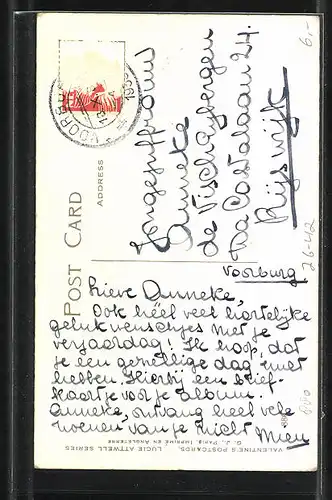 POST CARD
ADDRESS
VOORBURG
1931
6,-
Jongejuffrouw
Anneke
de Visch Eybergen
Da Costalaan 24.
Rijswijk
Voorburg
26-42
Lieve Anneke,
Ook héél veel hartelijke
gelukwenschjes met je
verjaardag! Ik hoop, dat
je een gezellige dag moet
hebben. Hierbij een brief-
kaartje voor je album.
Anneke, ontvang heel vele
zoenen van je nicht
Mien
VALENTINE'S POSTCARDS LUCIE ATTWELL SERIES
G. J. PARIS, IMPRIMÉ EN ANGLETERRE